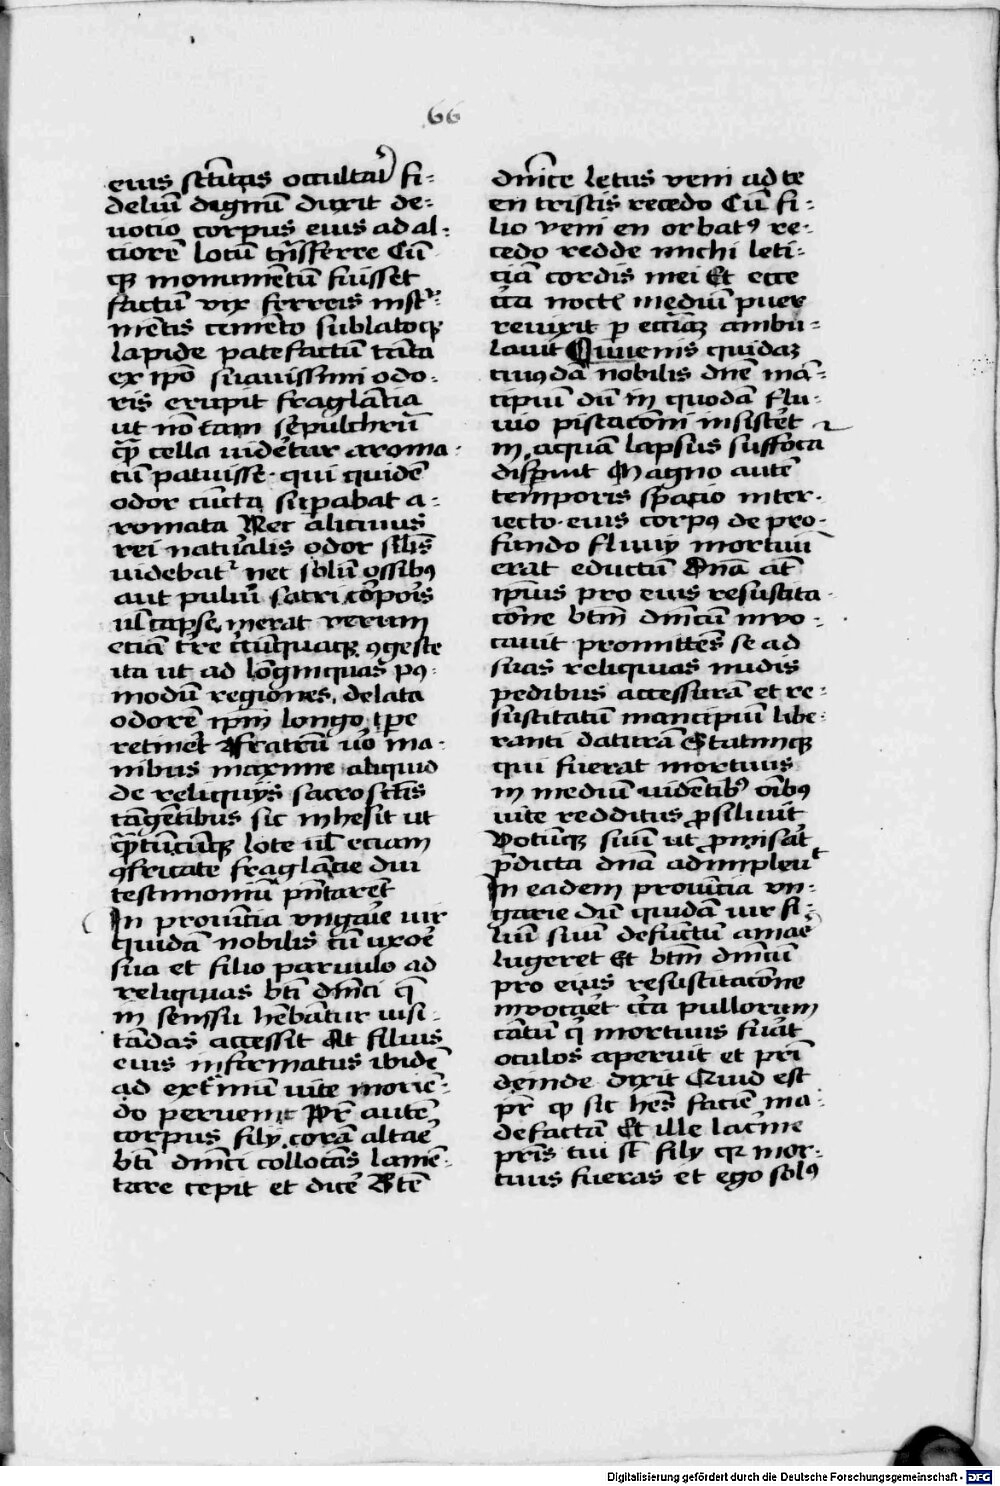 66
eius sctitas occultari fi-
deliu dignu duxit de-
uotio corpus eius ad al-
tiore locu tnsferre Cu
qꝫ monumentu fuisset
factu vix ferreis instru-
mentis cemento sublatoqꝫ
lapide patefactu tanta
ex ipo suauissimi odo-
ris erupit fraglantia
ut no tam sepulchru
qm cella videtur aroma-
tu patuisse · qui quide
odor cuncta supabat a-
romata Nec alicuius
rei naturalis odor silis
uidebatr nec solu ossibꝰ
aut pulueri sacri corporis
ul capse inerat verum
etia tre circuquaqꝫ ꝯgeste
ita ut ad longinquas pꝰ-
modu regiones delata
odore ipm longo tpe
retineret Fratru uo ma-
nibus maxime aliquid
de reliquijs sacrosctis
tangentibus sic inhesit ut
qntucuqꝫ lote ul etiam
ꝯfricate fraglantie diu
testimoniu pntaret
In prouincia vngarie uir
quidam nobilis cu uxore
sua et filio paruulo ad
reliquias bti dnici que
in senssu hebantur uisi-
tandas accessit At filius
eius infirmatus ibide
ad extremu uite morien-
do peruenit Pr aute
corpus filij cora altare
bti dnici collocans lamen-
tare cepit et dicere Bte
dnice letus veni ad te
en tristis recedo Cu fi-
lio veni en orbatꝰ re-
cedo redde michi leti-
cia cordis mei Et ecce
circa nocte mediu puer
reuixit p ecciaꝫ ambu-
lauit Iuuenis quidaꝫ
cuiꝰda nobilis dne man-
cipiu du in quodam flu-
uio piscacioni insisteret
in aquam lapsus suffoca
disparuit Magno aute
temporis spacio inter-
iecto · eius corpꝰ de pro-
fundo fluuij mortuu
erat eductu Dna at
ipius pro eius resuscita-
cione btm dnicu inuo-
cauit promittens se ad
suas reliquias nudis
pedibus accessura et re-
suscitatu mancipiu libe-
ranti datura Statimqꝫ
qui fuerat mortuus
in mediu uidentibꝰ oibꝰ
uite redditus prosiluit
Votuqꝫ suu ut promisat
pdicta dna adimpleuit
In eadem prouincia vn-
garie du quidam uir fi-
liu suu defunctu amare
lugeret Et btm dnicu
pro eius resuscitacione
inuocaret circa pullorum
cantu qi mortuus fuat
oculos aperuit et pri
deinde dixit Quid est
pr qꝫ sic hes facie ma-
defacta Et ille lacrime
pris tui st fily qꝫ mor-
tuus fueras et ego solꝰ
Digitalisierung gefördert durch die Deutsche Forschungsgemeinschaft - DFG